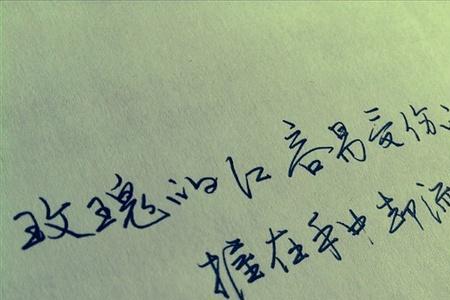 玫瑰的红容易受伤
握在手中却流